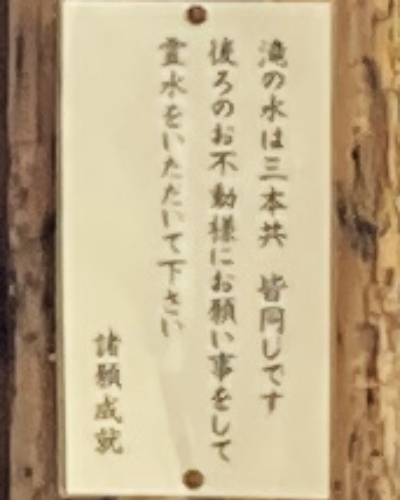 滝の水は三本共　皆同じです
後ろのお不動様にお願い事をして
霊水をいただいて下さい
諸願成就